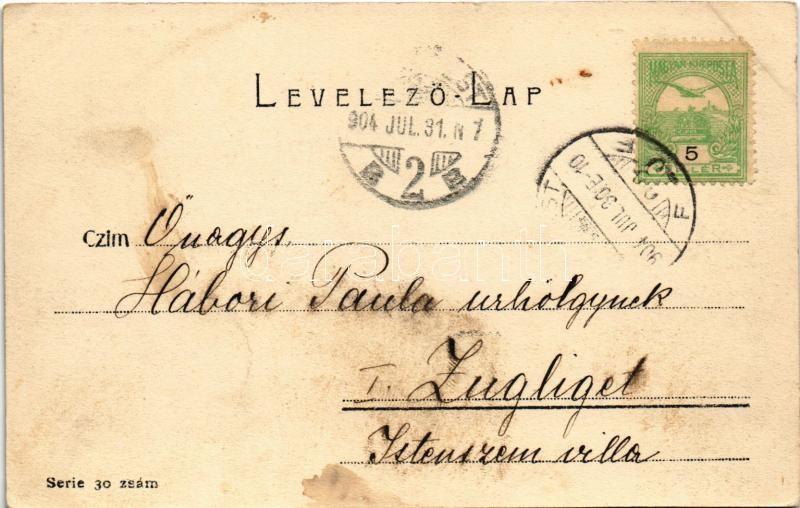 LEVELEZŐ-LAP
MAGYAR KIR. POSTA
5
904 JUL. 31. N 7
2
904 JUL 30 E 10
F
Czim Őnagys.
Hábori Paula urhölgynek
I. Zugliget
Istenszem villa
Serie 30 zsám
darabanth